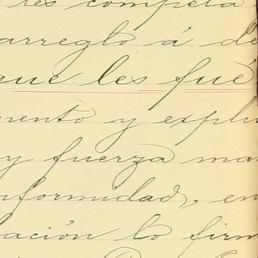 les completa
arreglo á de
que les fué
mento y expli
y fuerza ma
nformidad, en
ación lo firm